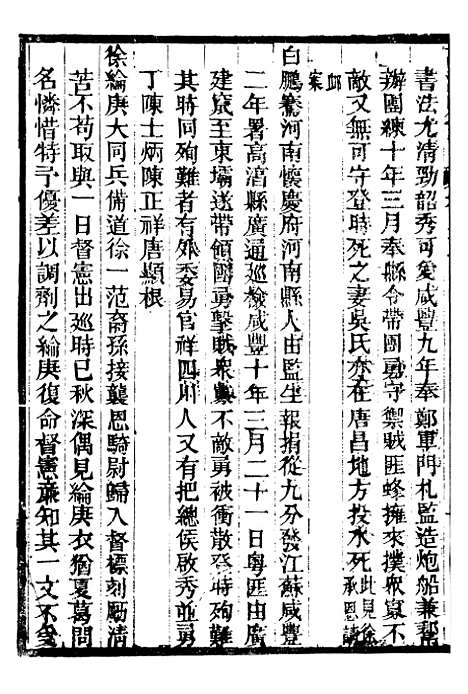 書法尤清勁韶秀可爱咸豐九年奉 鄭軍門札監造炮船兼幫
辦團練十年三月奉縣令帶團勇守禦賊匪蜂擁來撲眾寡不
敵又無可守登時死之妻吳氏亦在唐昌地方投水死此見徐承恩請
邺案
白鵬騫河南懷慶府河南縣人由監生報捐從九分發江蘇咸豐
二年署高湻縣廣通巡檢咸豐十年三月二十一日粵匪由廣
建竄至東壩遂帶領團勇擊賊眾寡不敵勇被衝散登時殉難
其時同殉難者有外委易官祥四則人又有把總侯啟秀並勇
丁陳士炳陳正祥唐顯根
徐綸庚大同兵備道徐一范裔孫接襲恩騎尉歸入督標刻厲清
苦不苟取與一日督憲出巡時已秋深偶見綸庚衣猶夏葛問
名憐惜特予優差以調劑之綸庚復命督憲葢知其一文不爰